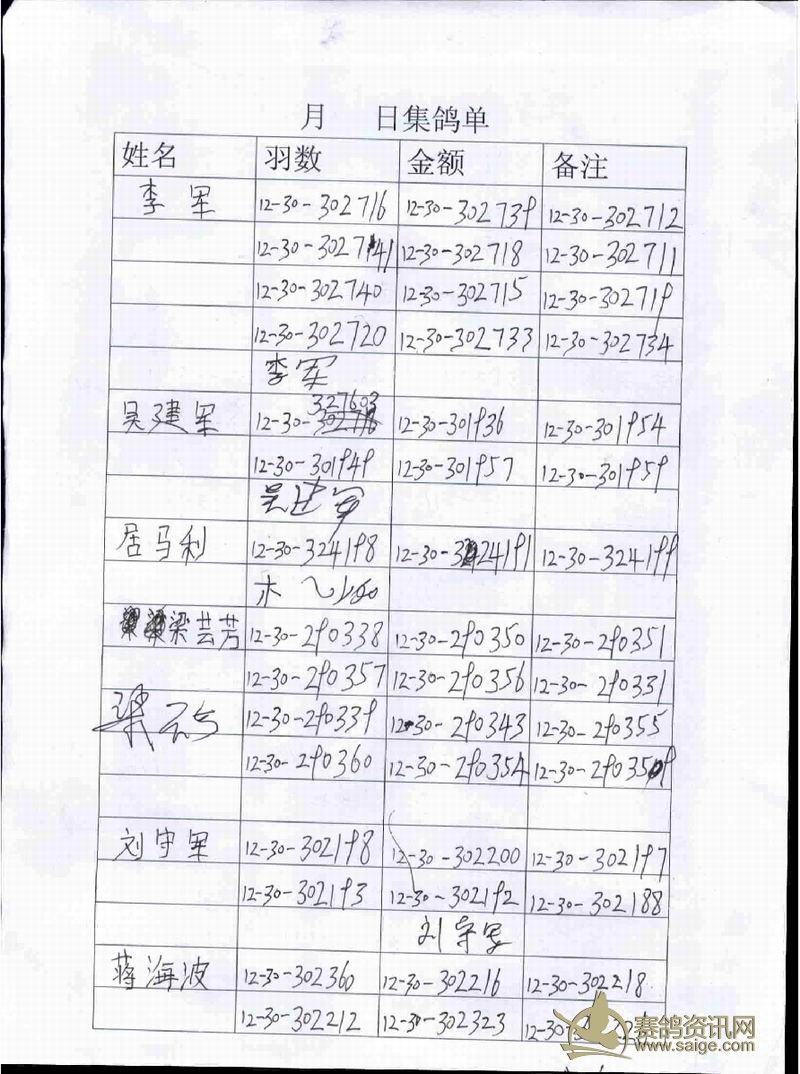 月 日集鸽单
姓名 羽数 金额 备注
李军 12-30-302716 12-30-302739 12-30-302712
12-30-302741 12-30-302718 12-30-302711
12-30-302740 12-30-302715 12-30-302719
12-30-302720 12-30-302733 12-30-302734
李军
327603
吴建军 12-30- 12-30-301936 12-30-301954
12-30-301949 12-30-301957 12-30-301959
吴建军
居马利 12-30-324198 12-30-324191 12-30-324199
梁芸芳 12-30-290338 12-30-290350 12-30-290351
12-30-290357 12-30-290356 12-30-290331
梁 12-30-290339 12-30-290343 12-30-290355
12-30-290360 12-30-290354 12-30-290359
刘守军 12-30-302198 12-30-302200 12-30-302197
12-30-302193 12-30-302192 12-30-302188
刘守军
蒋海波 12-30-302360 12-30-302216 12-30-302218
12-30-302212 12-30-302323 12-30
赛鸽资讯网
www.saige.com